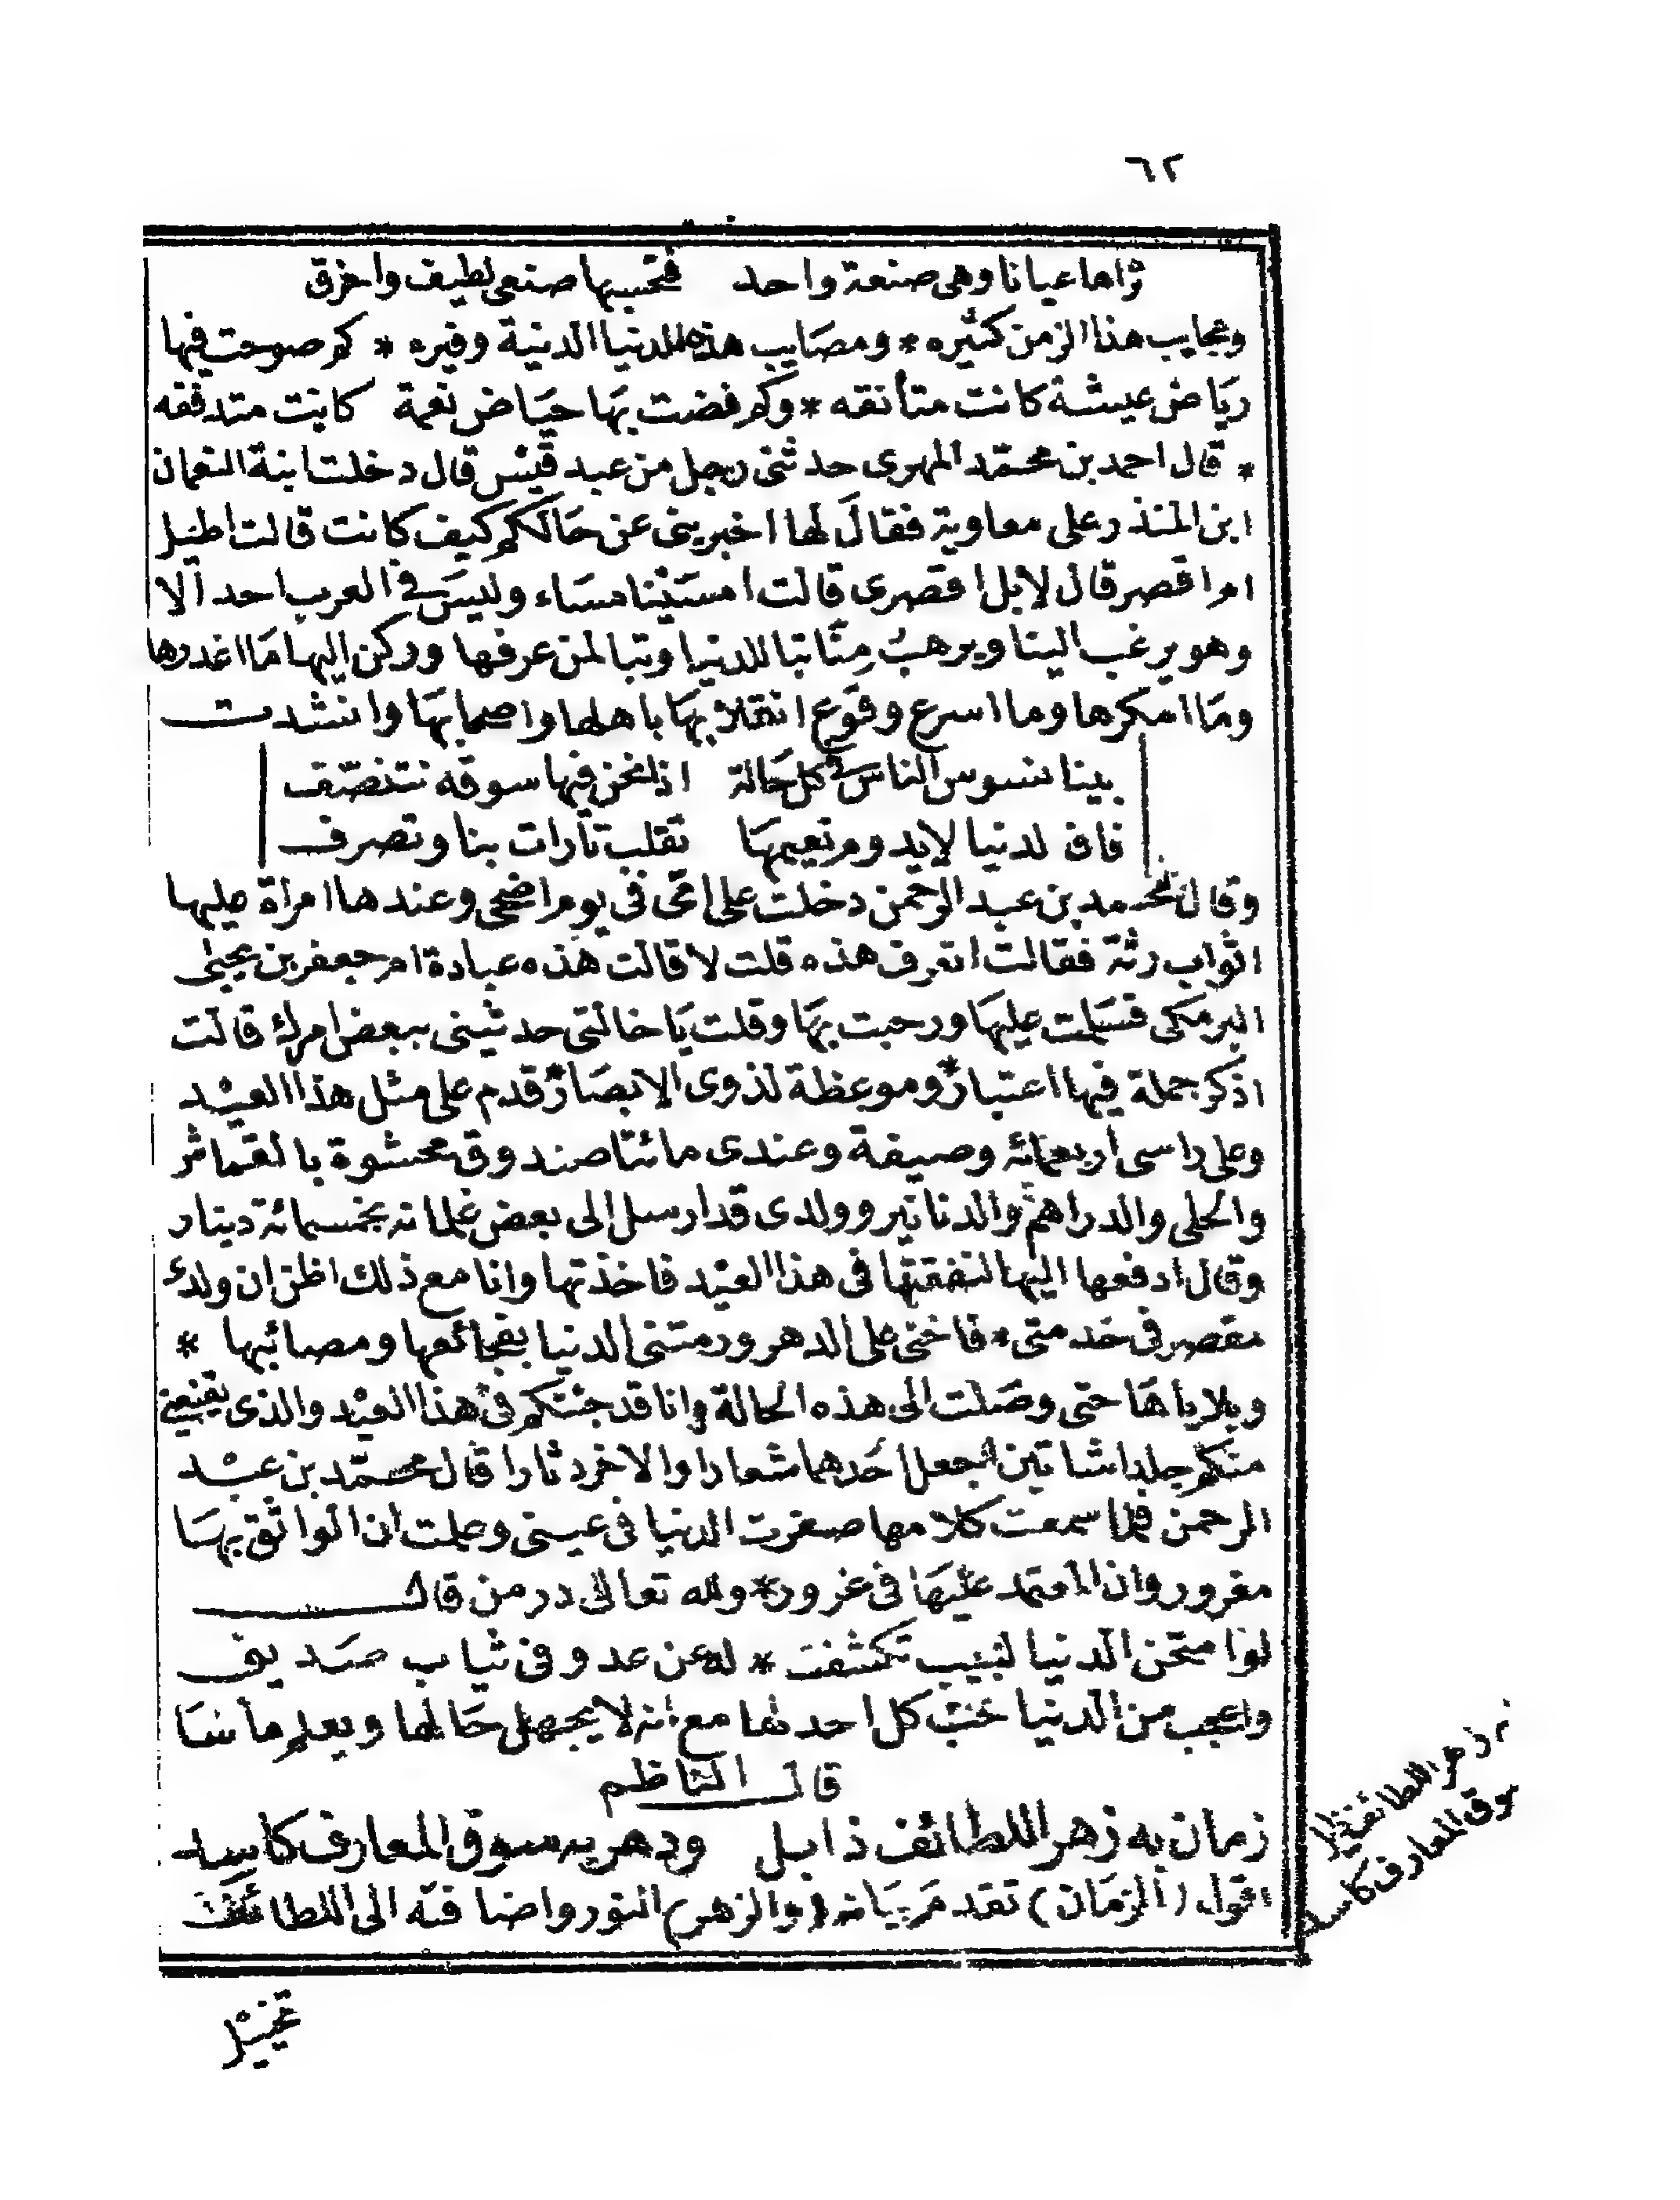 ٦٢
تراها عيانا وهى صنعة واحد فتحسبها صنعى لطيف واخرق
وعجايب هذا الزمن كثيره * ومصايب هذه الدنيا الدنية وفيره * كم صوحت فيها
رياض عيشة كانت متأنقه * وكم غضت بها حياض نعيمة كانت متدفقه
* قال احمد بن محمد المهرى حدثنى رجل من عبد قيس قال دخلت ابنة النعمان
ابن المنذر على معاوية فقال لها اخبرينى عن حالكم كيف كانت قالت اطيل
ام اقصر قال لا بل اقصرى قالت امسينا مساء وليس فى العرب احد الا
وهو يرغب الينا ويرهب منا تبا للدنيا وتبا لمن عرفها وركن اليها ما اغدرها
وما امكرها وما اسرع وقوع انقلابها باهلها واصحابها وانشدت
بينا نسوس الناس فى كل حالة اذا نحن فيها سوقه نتنصف
فاف لدنيا لا يدوم نعيمها تقلب تارات بنا وتصرف
وقال محمد بن عبد الرحمن دخلت على امى فى يوم اضحى وعندها امراة عليها
اثواب رثة فقالت اتعرف هذه قلت لا قالت هذه عبادة ام جعفر بن يحيى
البرمكى فسلمت عليها ورحبت بها وقلت يا خالتى حدثينى ببعض امرك قالت
اذكر جملة فيها اعتبار * وموعظة لذوى الابصار * قدم على مثل هذا العيد
وعلى راسى اربعمائه وصيفة وعندى مائتا صندوق محشوة بالقماش
والحلى والدراهم والدنانير وولدى قد ارسل الى بعض غلمانه بخمسمائة دينار
وقال ادفعها اليها لنفقتها فى هذا العيد فاخذتها وانا مع ذلك اظن ان ولدى
مقصر فى خدمتى * فاخنى على الدهر ورمتنى الدنيا بفجائعها ومصائبها *
وبلاياها حتى وصلت الى هذه الحالة وانا قد جئتكم فى هذا العيد والذى يقنعنى
منكم جلدا شاتين اجعل احدهما شعارا والاخر دثارا قال محمد بن عبد
الرحمن فلما سمعت كلامها صغرت الدنيا فى عينى وعلمت ان الواثق بها
مغرور وان المعتمد عليها فى غرور * ولله تعالى در من قال
اذا امتحن الدنيا لبيب تكشفت * له عن عدو فى ثياب صديق
واعجب من الدنيا محبة كل احد لها مع انه لا يجهل حالها ويعلم مآلها
قال الناظم
زمان به زهر اللطائف ذابل ودهر به سوق المعارف كاسد
اقول (الزمان) تقدم بيانه (والزهر) النور واضافته الى اللطائف
زهر اللطائف ذابل
سوق المعارف كاسد
تخييل